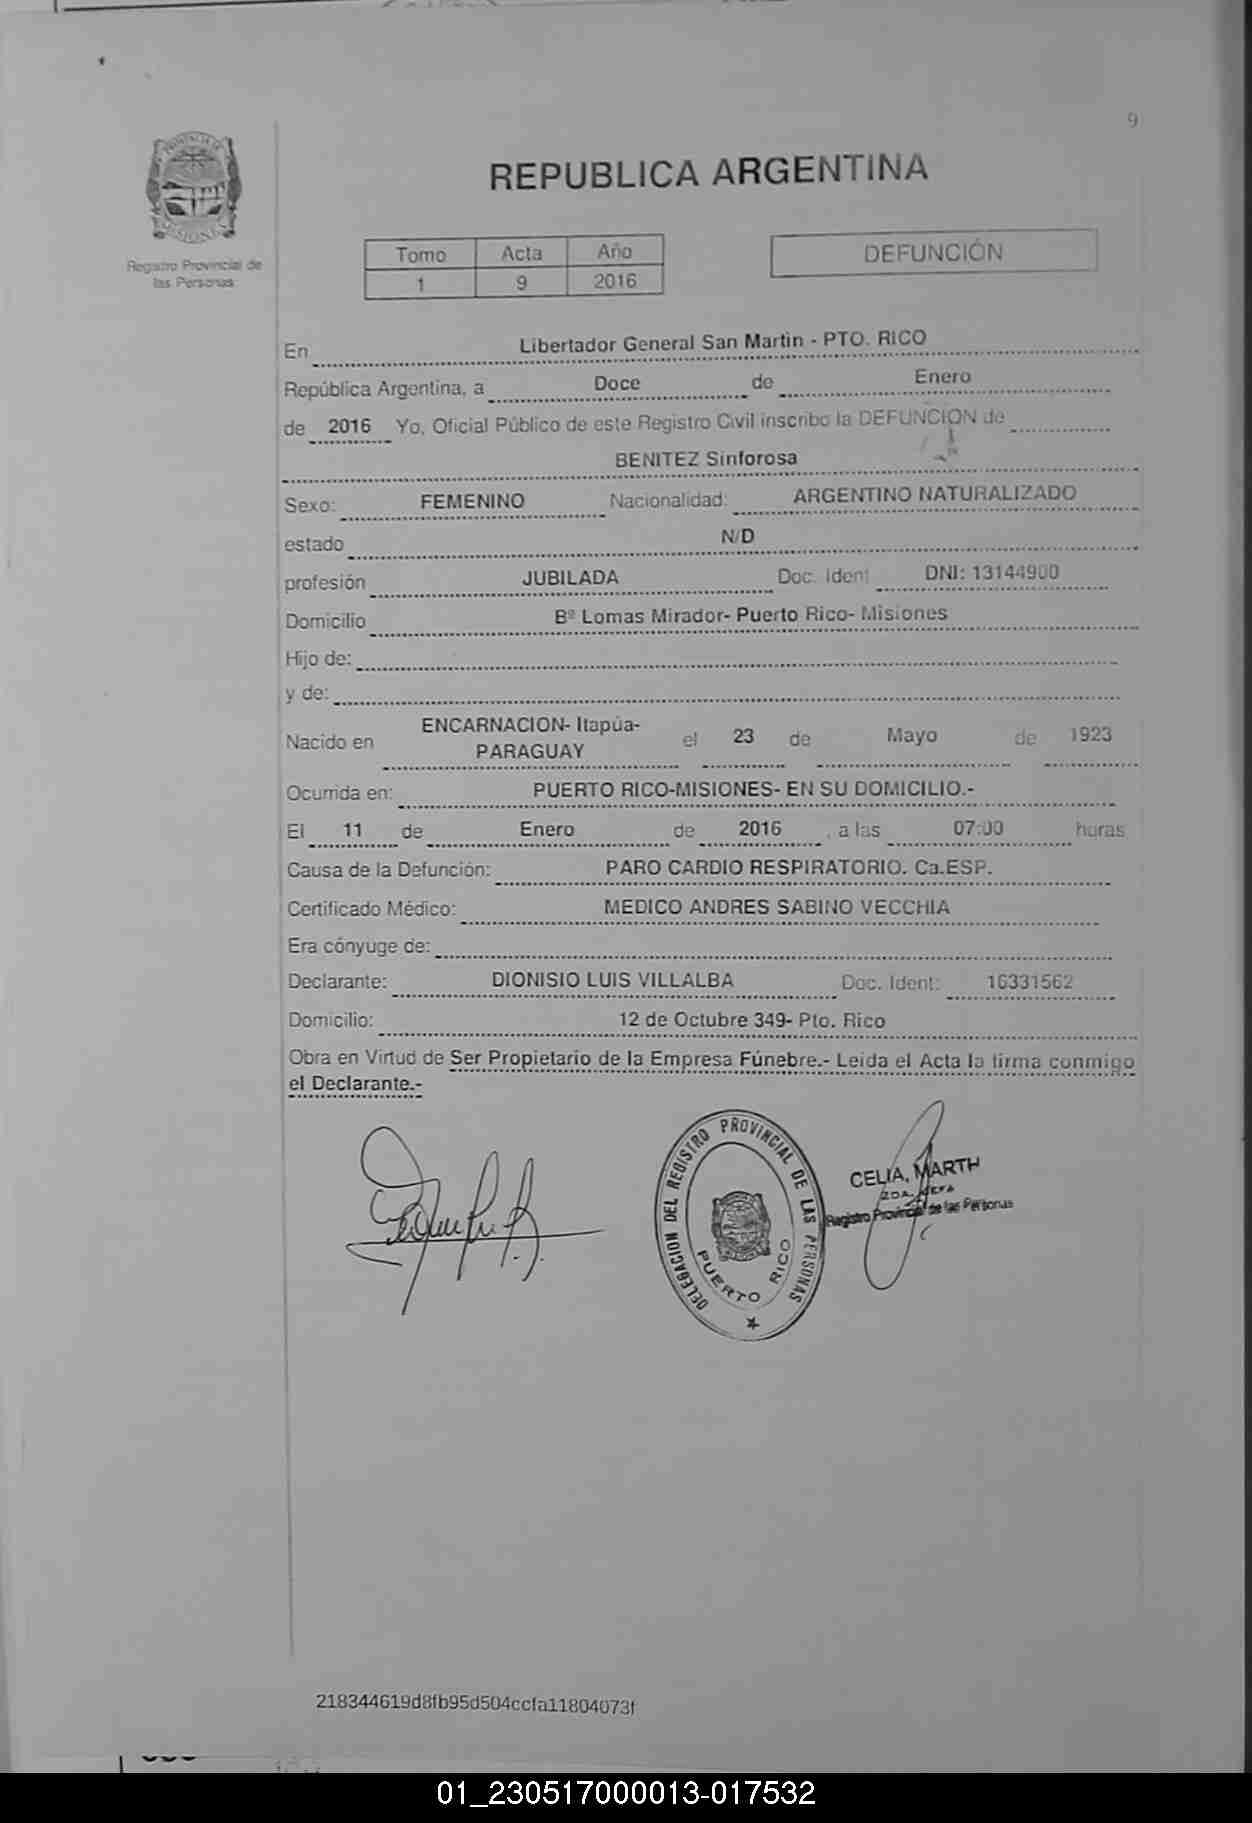 9
PROVINCIA DE
MISIONES
Registro Provincial de
las Personas
REPUBLICA ARGENTINA
Tomo Acta Año
1 9 2016
DEFUNCIÓN
En Libertador General San Martin - PTO. RICO
República Argentina, a Doce de Enero
de 2016 Yo, Oficial Público de este Registro Civil inscribo la DEFUNCION de
BENITEZ Sinforosa
Sexo: FEMENINO Nacionalidad: ARGENTINO NATURALIZADO
estado N/D
profesión JUBILADA Doc. Ident DNI: 13144900
Domicilio Bº Lomas Mirador- Puerto Rico- Misiones
Hijo de:
y de:
Nacido en ENCARNACION- Itapúa- PARAGUAY el 23 de Mayo de 1923
Ocurrida en: PUERTO RICO-MISIONES- EN SU DOMICILIO.-
El 11 de Enero de 2016 , a las 07:00 horas
Causa de la Defunción: PARO CARDIO RESPIRATORIO. Ca.ESP.
Certificado Médico: MEDICO ANDRES SABINO VECCHIA
Era cónyuge de:
Declarante: DIONISIO LUIS VILLALBA Doc. Ident: 16331562
Domicilio: 12 de Octubre 349- Pto. Rico
Obra en Virtud de Ser Propietario de la Empresa Fúnebre.- Leida el Acta la firma conmigo
el Declarante.-
DELEGACION DEL REGISTRO PROVINCIAL DE LAS PERSONAS
PUERTO RICO
CELIA, MARTH
2DA. JEFA
Registro Provincial de las Personas
218344619d8fb95d504ccfa11804073f
01_230517000013-017532